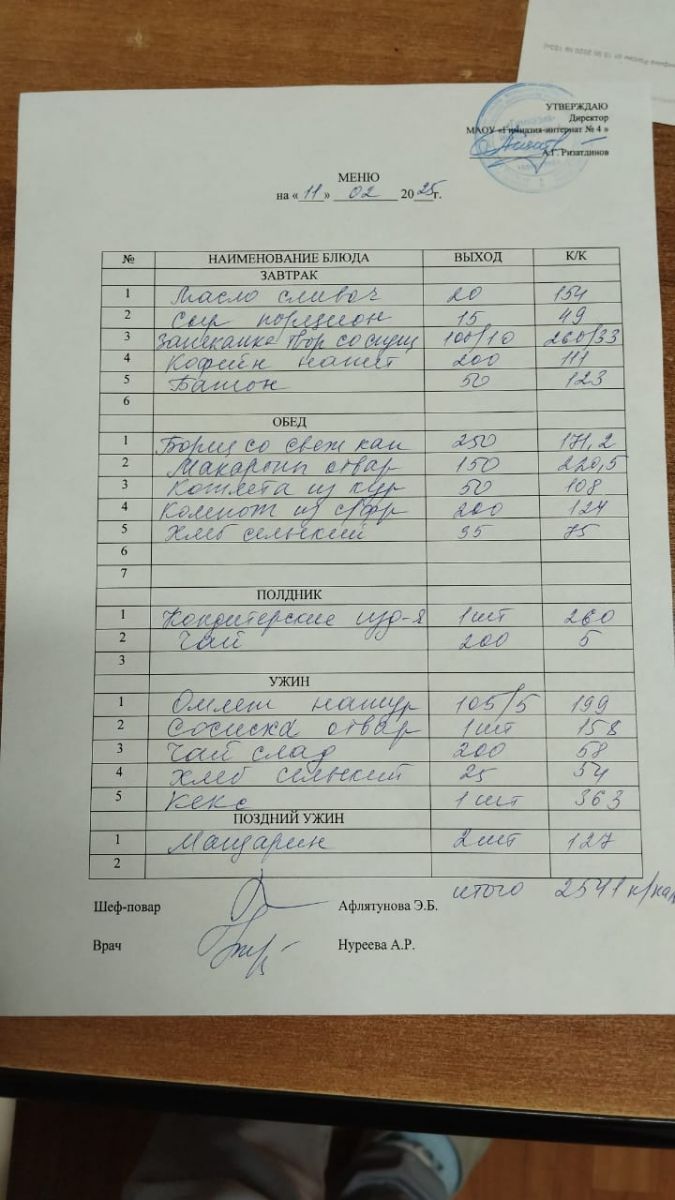 УТВЕРЖДАЮ
Директор
МАОУ «Гимназия-интернат № 4 »
А.Г. Ризатдинов
МЕНЮ
на « 11 » 02 20 25 г.
№ НАИМЕНОВАНИЕ БЛЮДА ВЫХОД К/К
ЗАВТРАК
1 Масло сливоч 20 154
2 Сыр порцион 15 49
3 Запеканка твор со сгущ 100/10 260/33
4 Кофейн напит 200 111
5 Батон 50 123
6
ОБЕД
1 Борщ со свеж кап 250 171,2
2 Макароны отвар 150 220,5
3 Котлета из кур 50 108
4 Компот из с/фр 200 124
5 Хлеб сельский 35 75
6
7
ПОЛДНИК
1 Кондитерские изд-я 1шт 260
2 Чай 200 5
3
УЖИН
1 Омлет натур 105/5 199
2 Сосиска отвар 1шт 158
3 Чай слад 200 58
4 Хлеб сельский 25 54
5 Кекс 1шт 363
ПОЗДНИЙ УЖИН
1 Мандарин 2шт 127
2
итого 2541 к/кал
Шеф-повар Афлятунова Э.Б.
Врач Нуреева А.Р.